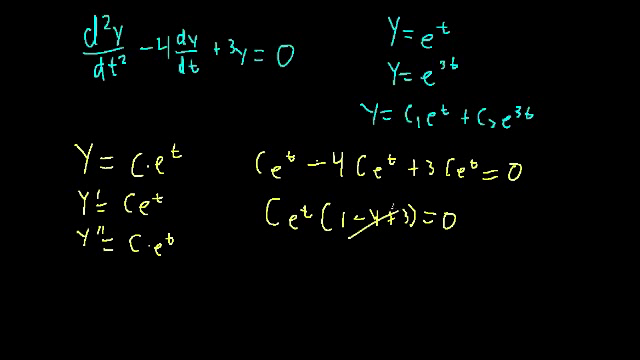 d²y/dt² - 4 dy/dt + 3y = 0
y = e^t
y = e^{3t}
y = C₁e^t + C₂e^{3t}
y = C·e^t
y' = Ce^t
y'' = C·e^t
Ce^t - 4Ce^t + 3Ce^t = 0
Ce^t(1-4+3) = 0